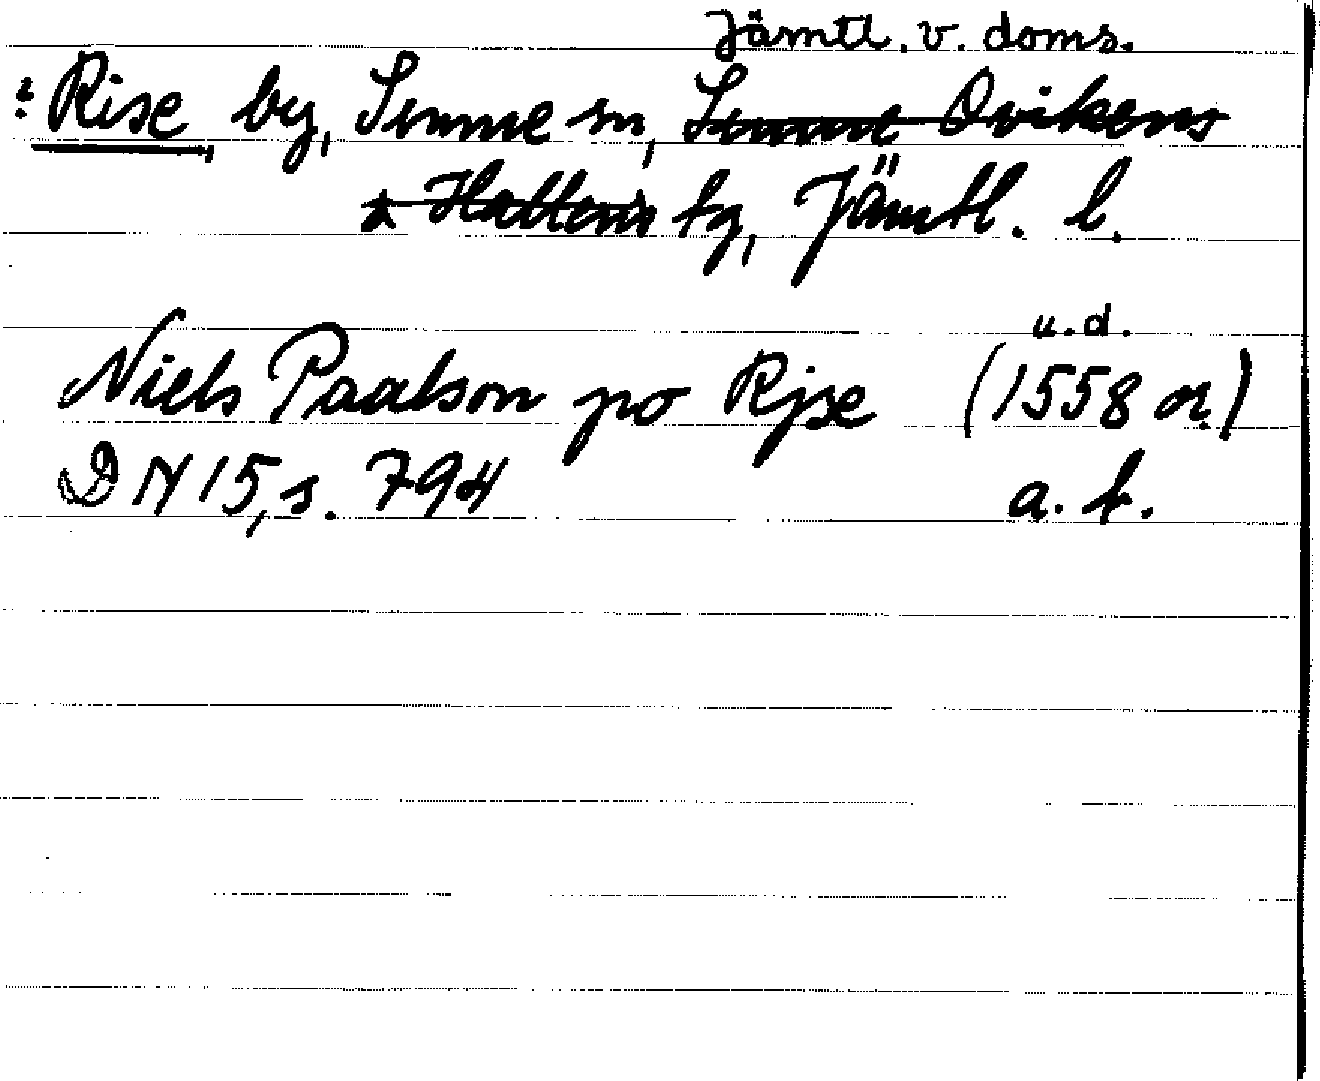 Jämtl. v. doms.
: Rise by, Sunne sn, Sunne Ovikens
& Hallens tg, Jämtl. l.
u.d.
Niels Paalson po Rjse (1558 or.)
DN 15, s. 794 a. f.